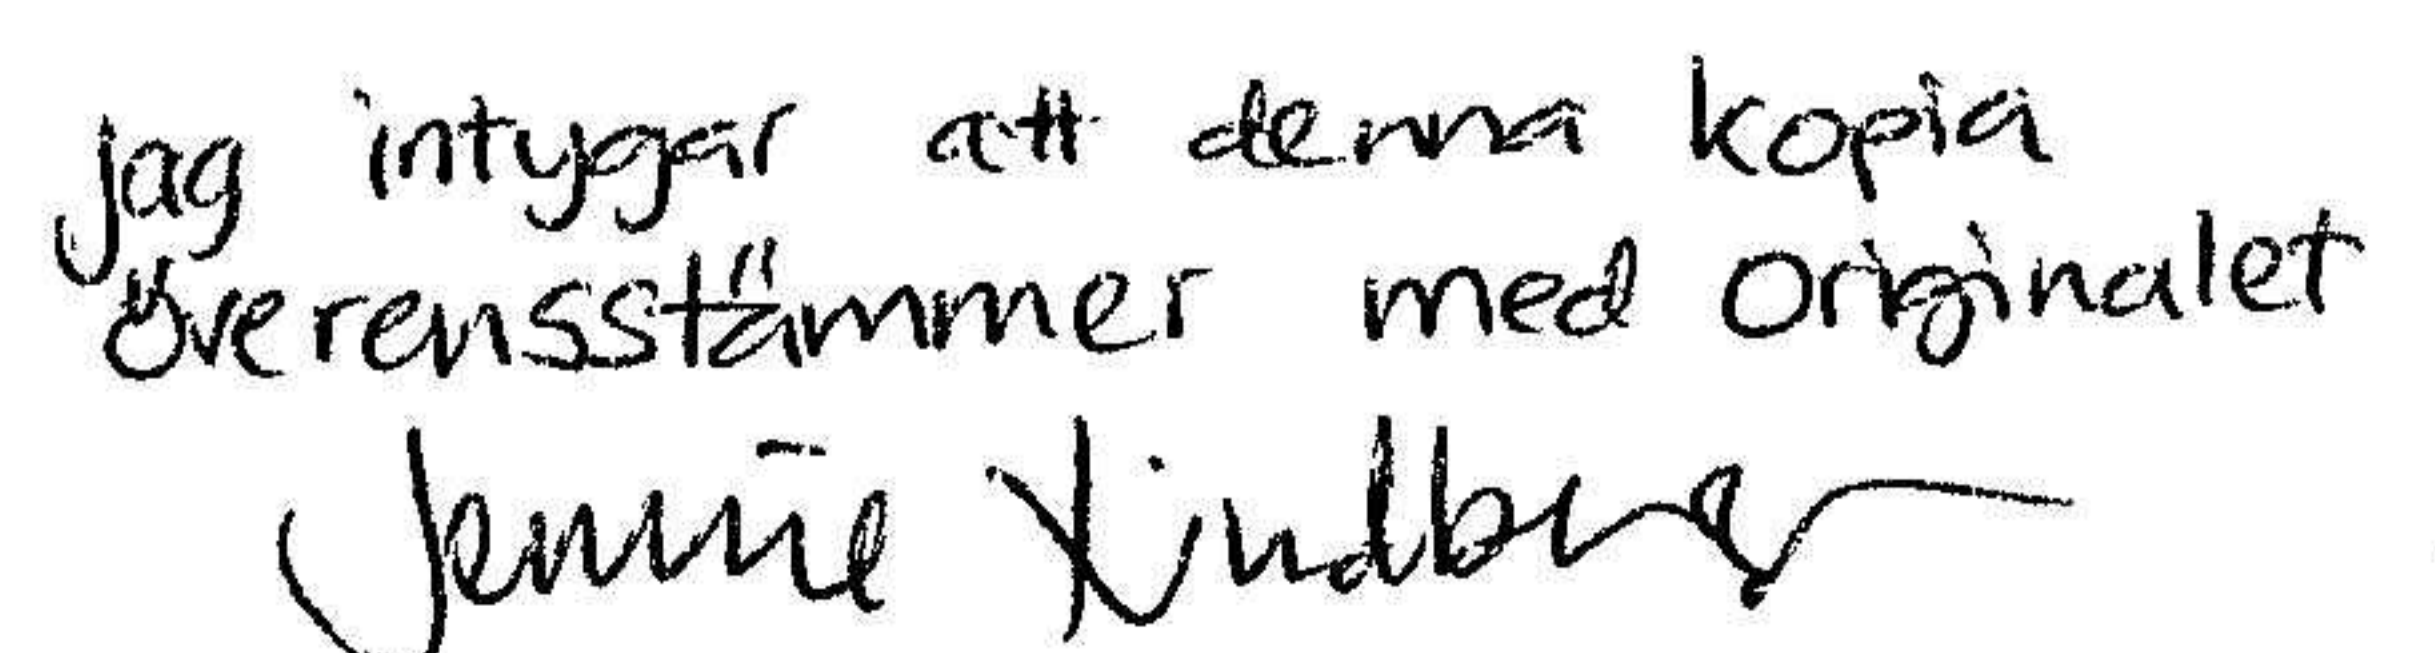 jag intygar att denna kopia
överensstämmer med originalet
Jennie Lindberg